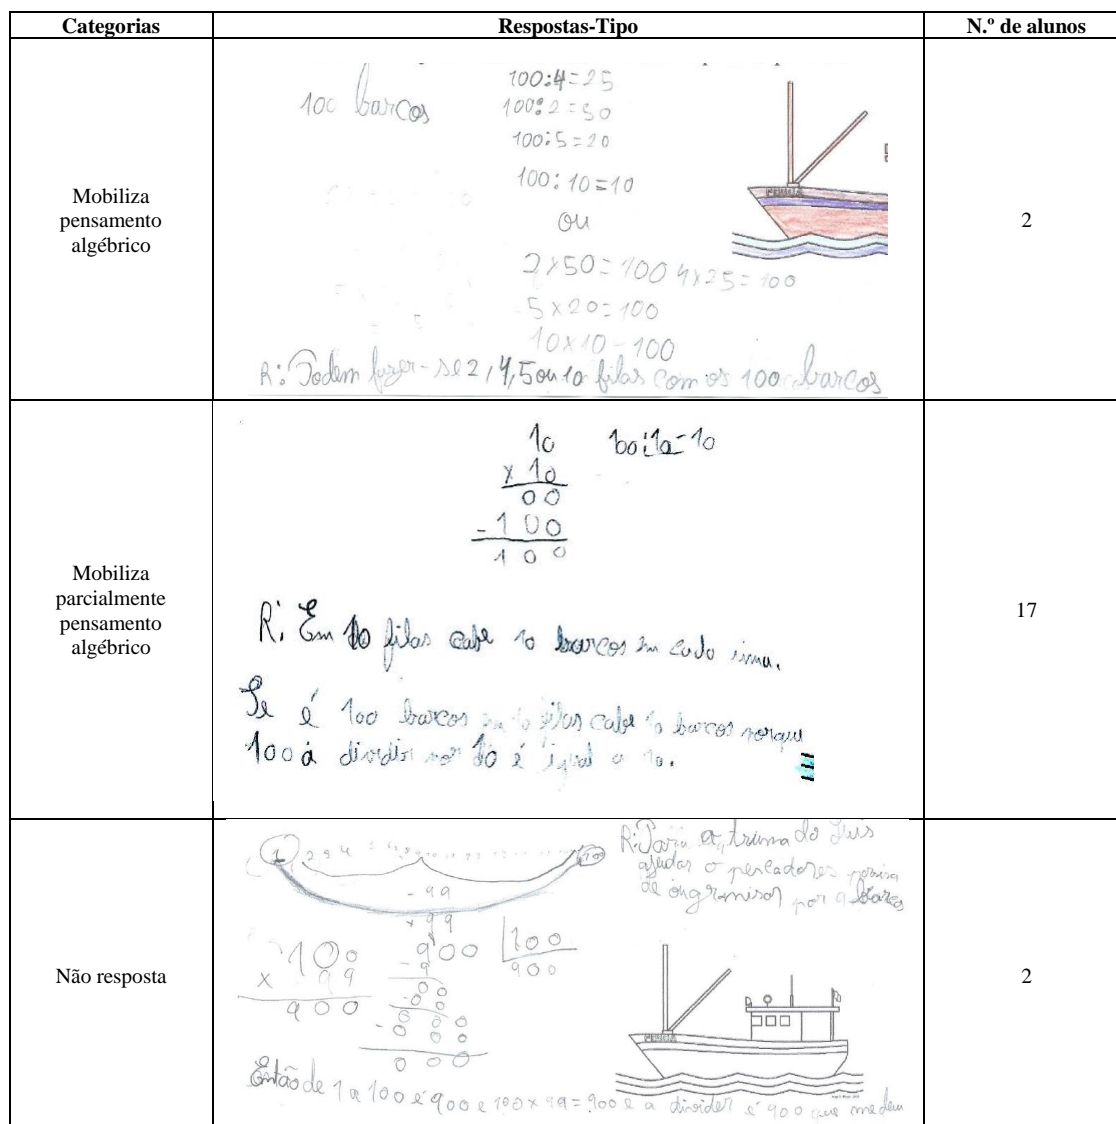 Categorias Respostas-Tipo N.º de alunos
Mobiliza
pensamento
algébrico
100 barcos
100:4=25
100:2=50
100:5=20
100:10=10
ou
2x50=100 4x25=100
5x20=100
10x10-100
R: Podem fazer-se 2,4,5 ou 10 filas com os 100 barcos
2
Mobiliza
parcialmente
pensamento
algébrico
10 100:10=10
x 10
00
-100
100
R: Em 10 filas cabe 10 barcos em cada uma.
Se é 100 barcos em 10 filas cabe 10 barcos porque
100 a dividir por 10 é igual a 10.
17
Não resposta
1 2 3 4 100
- 99
+ 99
100
x 99
900
900 |100
-9 900
00
-00
000
-000
000
R: Para a turma do Luís
ajudar o pescadores
de por 9 barcos
Então de 1 a 100 é 900 e 100 x 99 = 900 e a divider é 900 que medeu
2